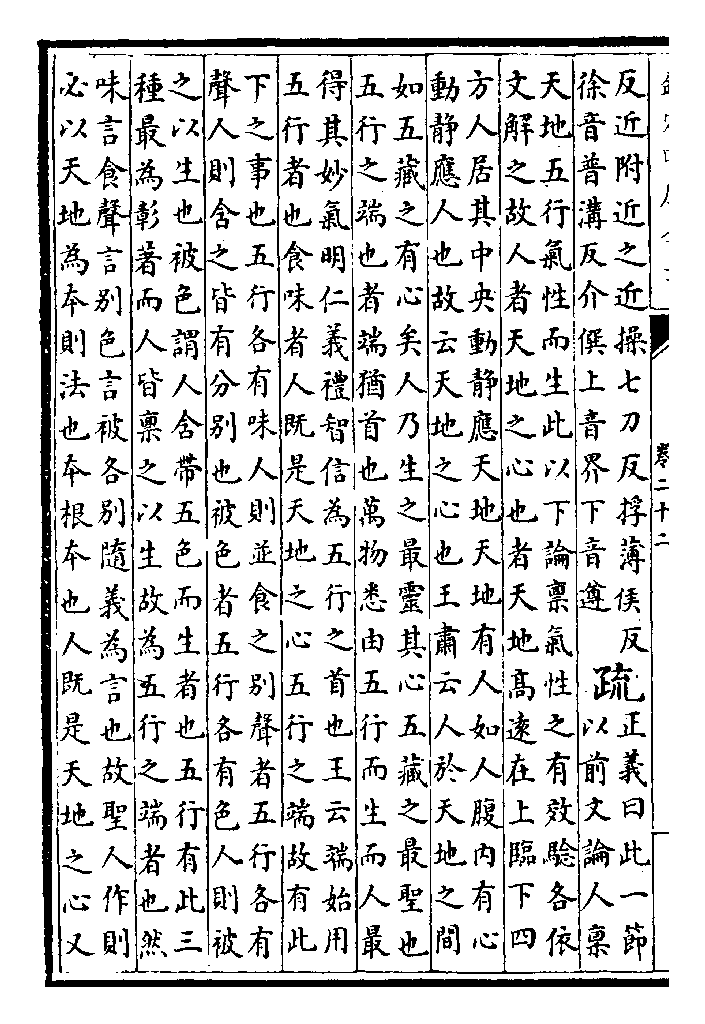 卷二十二
反近附近之近操七刀反捊薄侯反
徐音普溝反介僎上音界下音遵
疏
正義曰此一節
以前文論人禀
天地五行氣性而生此以下論禀氣性之有效驗各依
文解之故人者天地之心也者天地髙逺在上臨下四
方人居其中央動静應天地天地有人如人腹内有心
動静應人也故云天地之心也王肅云人於天地之間
如五藏之有心矣人乃生之最靈其心五藏之最聖也
五行之端也者端猶首也萬物悉由五行而生而人最
得其妙氣明仁義禮智信為五行之首也王云端始用
五行者也食味者人既是天地之心五行之端故有此
下之事也五行各有味人則並食之别聲者五行各有
聲人則含之皆有分别也被色者五行各有色人則被
之以生也被色謂人含帶五色而生者也五行有此三
種最為彰著而人皆禀之以生故為五行之端者也然
味言食聲言别色言被各别隨義為言也故聖人作則
必以天地為本則法也本根本也人既是天地之心又